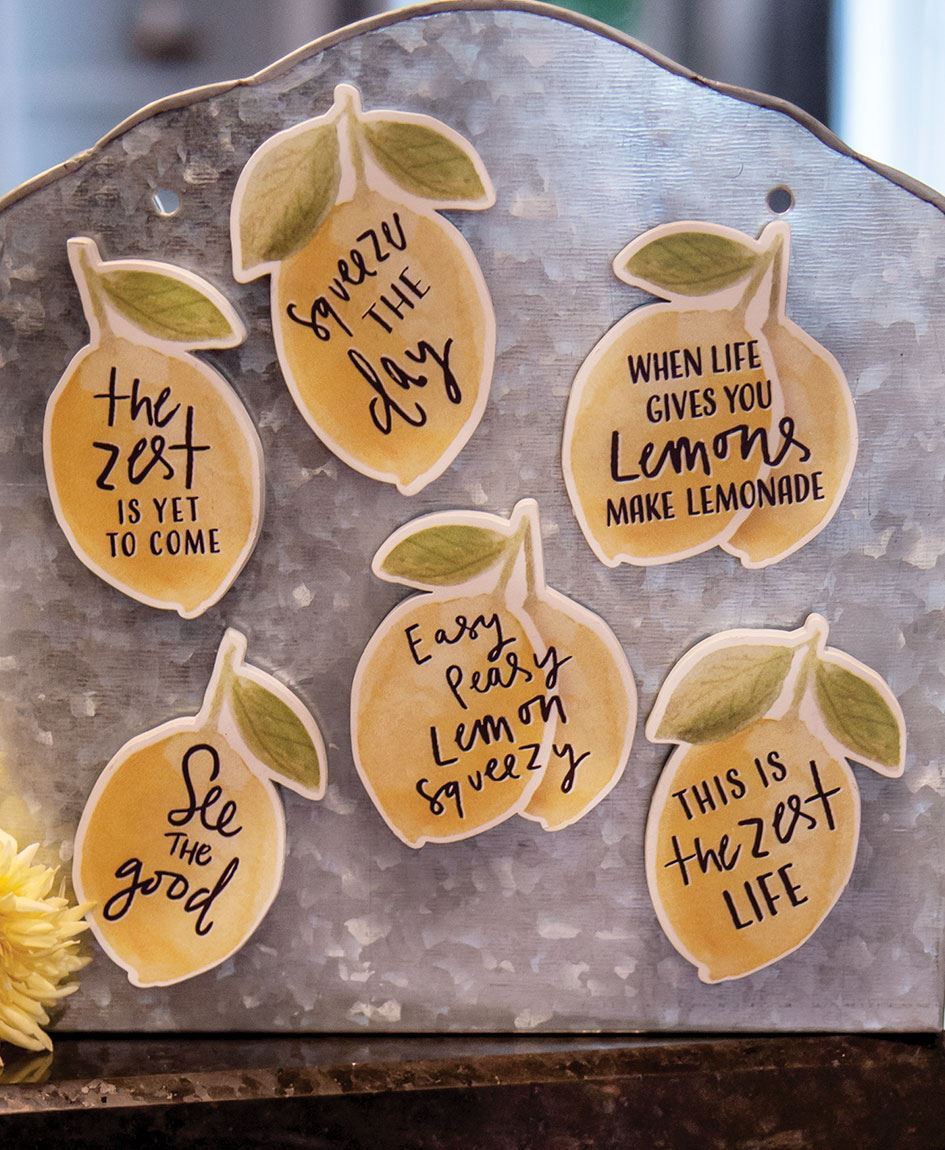 the
zest
IS YET
TO COME
squeeze
THE
day
WHEN LIFE
GIVES YOU
Lemons
MAKE LEMONADE
See
THE
good
Easy
Peasy
Lemon
squeezy
THIS IS
the zest
LIFE